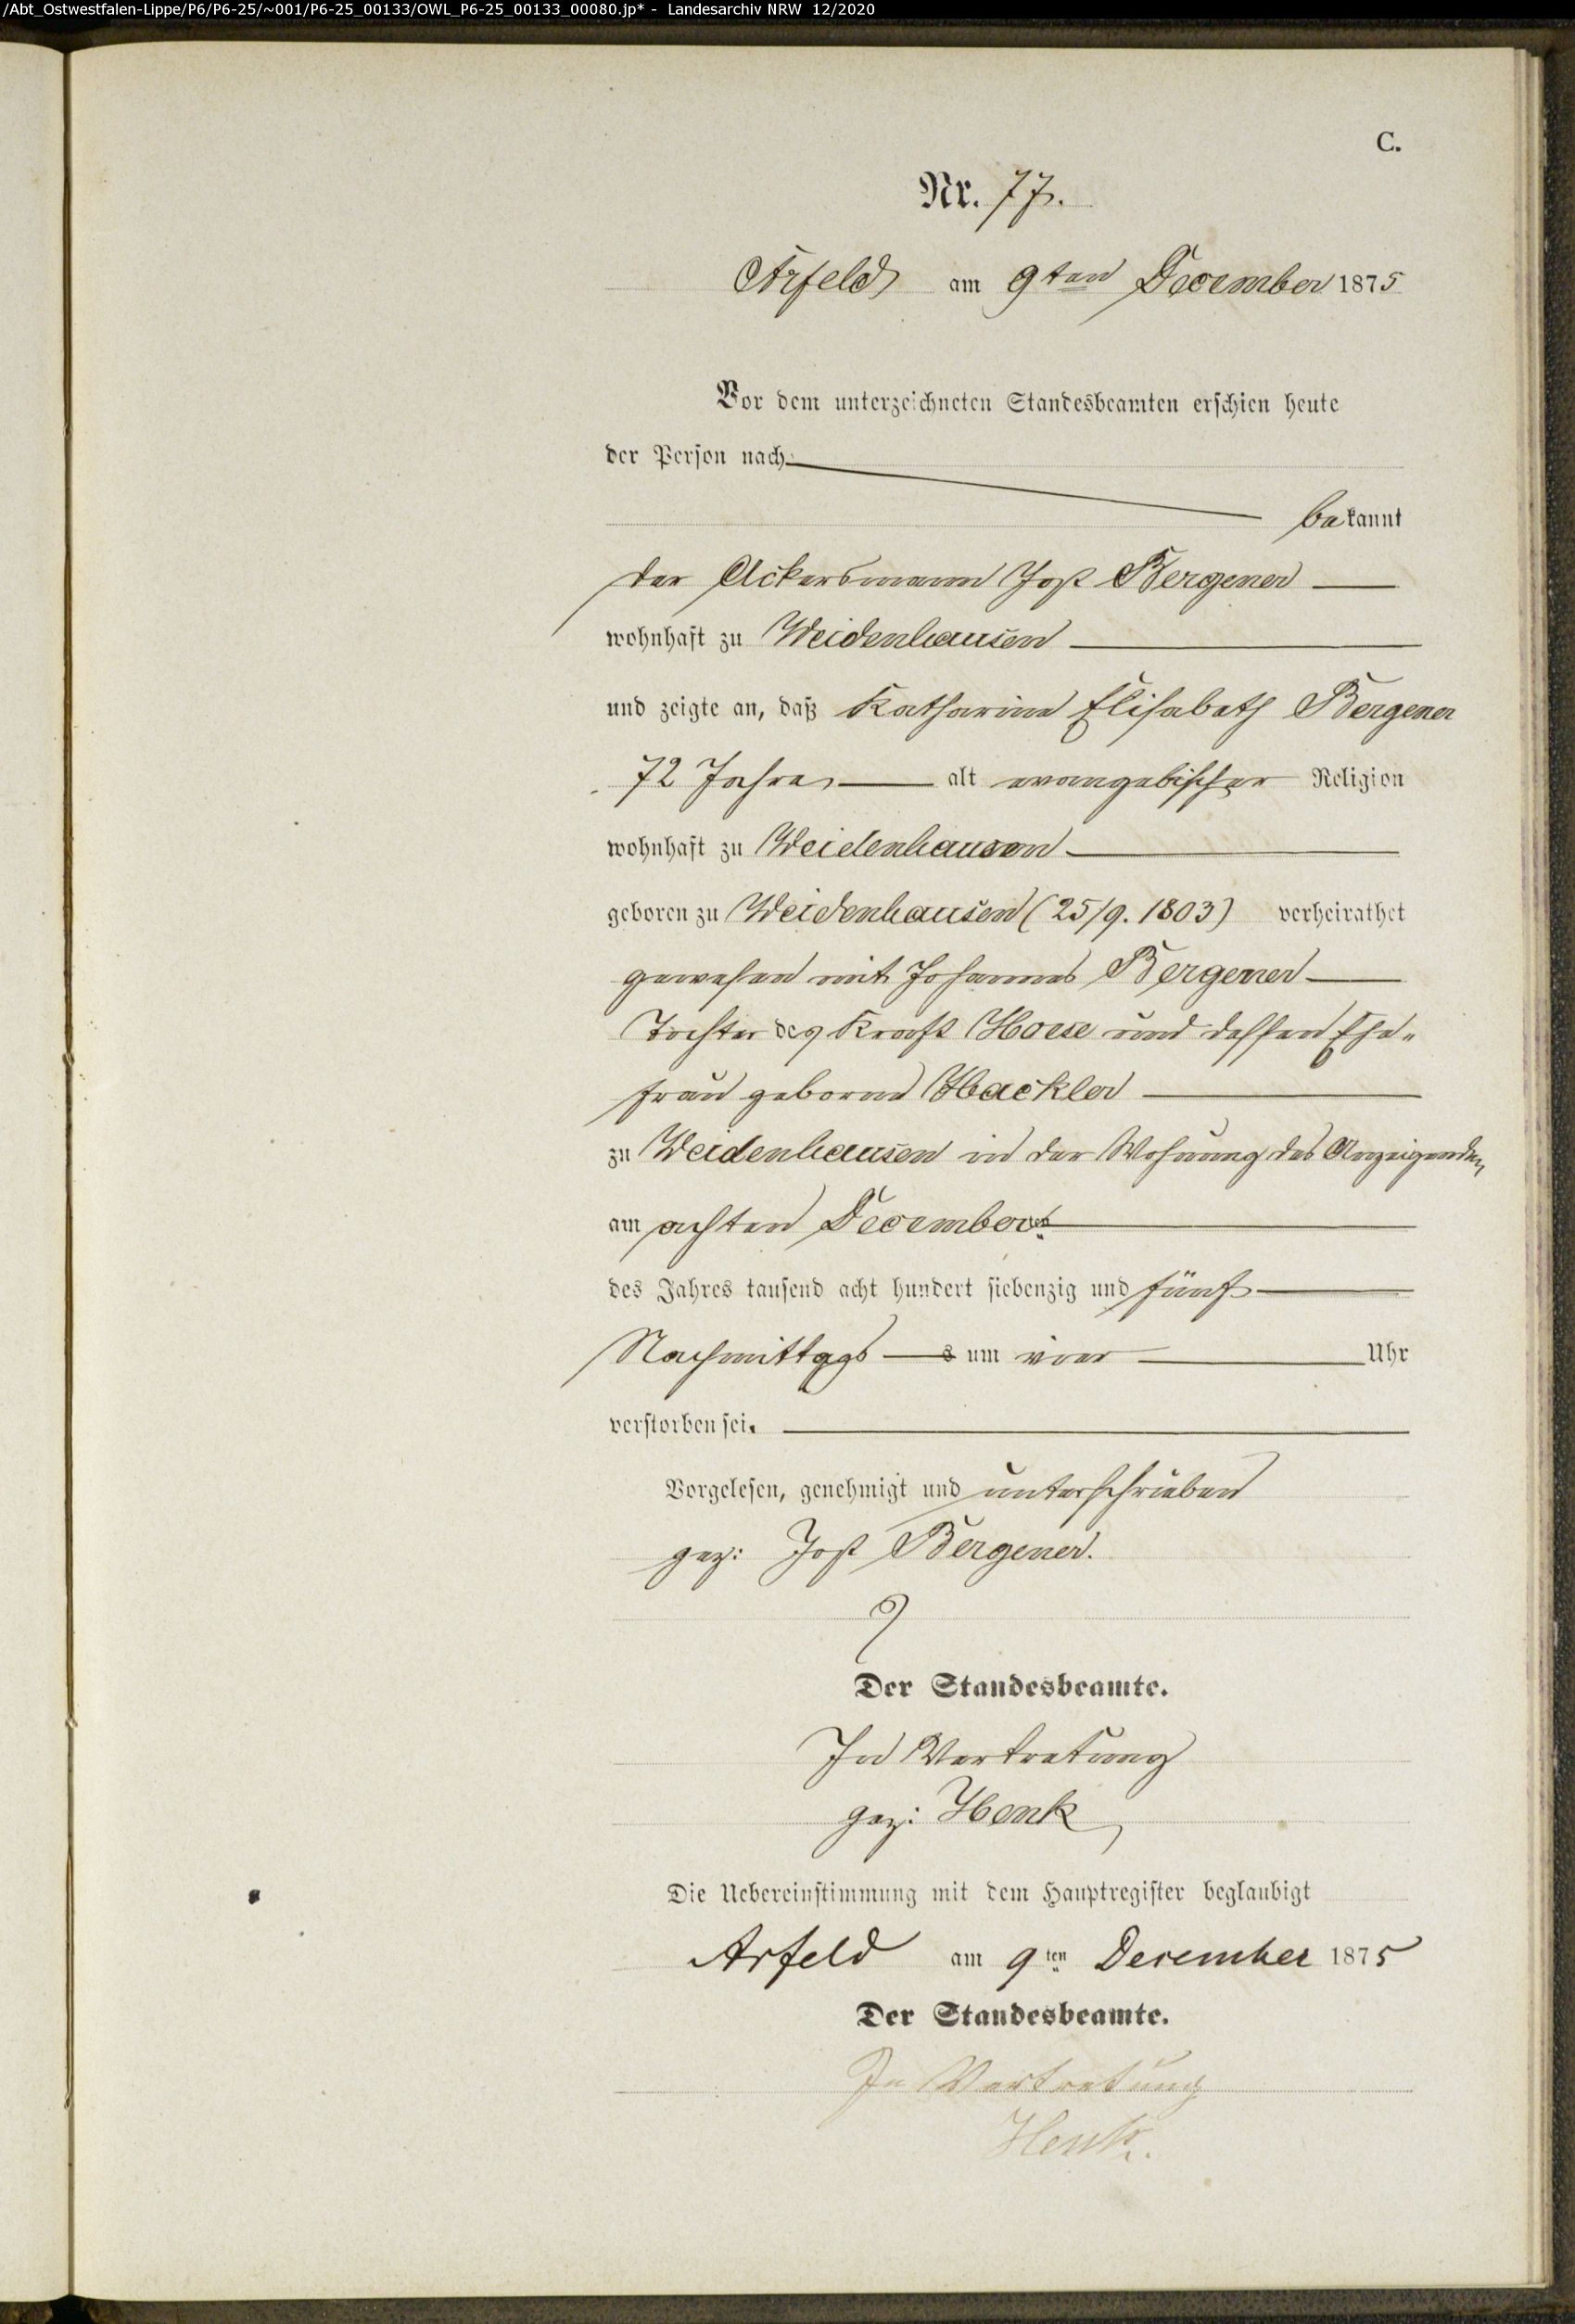 /Abt_Ostwestfalen-Lippe/P6/P6-25/~001/P6-25_00133/OWL_P6-25_00133_00080.jp* - Landesarchiv NRW 12/2020
C.
Nr. 77.
Arfeld am 9ten December 1875
Vor dem unterzeichneten Standesbeamten erschien heute
der Person nach
bekannt
der Ackersmann Jost Bergener
wohnhaft zu Weidenhausen
und zeigte an, daß Katharine Elisabeth Bergener
72 Jahre alt evangelischer Religion
wohnhaft zu Weidenhausen
geboren zu Weidenhausen (25/9. 1803) verheirathet
gewesen mit Johannes Bergener
Tochter des Kraft Hoese und dessen Ehe-
frau geborne Hackler
zu Weidenhausen in der Wohnung des Anzeigenden
am achten December
des Jahres tausend acht hundert siebenzig und fünf
Nachmittags um vier Uhr
verstorben sei.
Vorgelesen, genehmigt und unterschrieben
gez: Jost Bergener.
Der Standesbeamte.
In Vertretung
gez: Henk
Die Uebereinstimmung mit dem Hauptregister beglaubigt
Arfeld am 9ten December 1875
Der Standesbeamte.
In Vertretung
Henk.